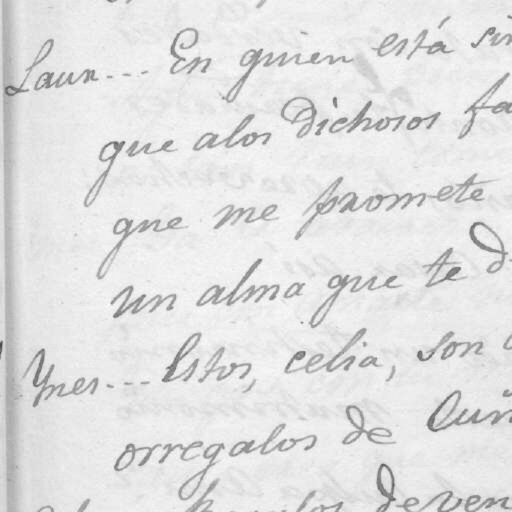 Laur... En quien está
que alos dichosos
que me promete
un alma que te
Ynes... Estos, celia, son
orregalos de